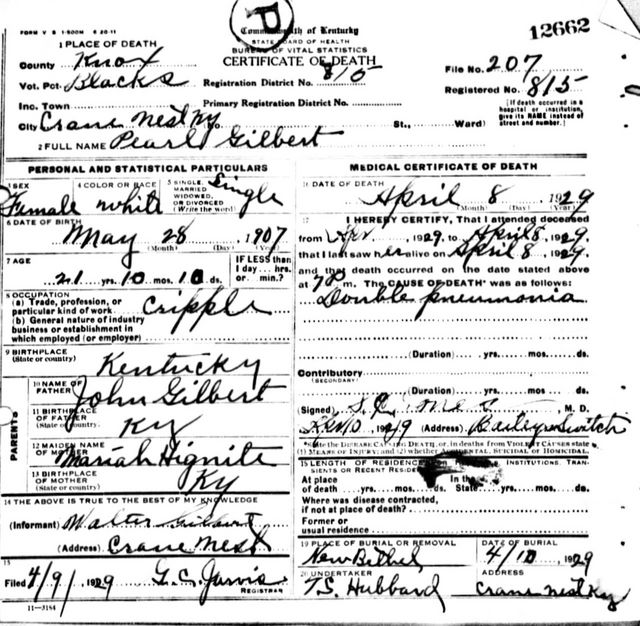 FORM V S 1-500M 6 20-11
P
Commonwealth of Kentucky
STATE BOARD OF HEALTH
BUREAU OF VITAL STATISTICS
CERTIFICATE OF DEATH
12662
1 PLACE OF DEATH
County Knox
Vot. Pct. Blacks
Registration District No. 815
File No. 207
Registered No. 815
Inc. Town
Primary Registration District No.
[If death occurred in a hospital or institution, give its NAME instead of street and number.]
City Crane Nest Ky No. St., Ward)
2 FULL NAME Pearl Gilbert
PERSONAL AND STATISTICAL PARTICULARS
3 SEX Female
4 COLOR OR RACE white
5 SINGLE, MARRIED WIDOWED, OR DIVORCED (Write the word) Single
6 DATE OF BIRTH
May 28, 1907
(Month) (Day) (Year)
7 AGE
21 yrs. 10 mos. 10 ds.
IF LESS than 1 day... hrs. or min.?
8 OCCUPATION
(a) Trade, profession, or particular kind of work Cripple
(b) General nature of industry business or establishment in which employed (or employer)
9 BIRTHPLACE
(State or country) Kentucky
PARENTS
10 NAME OF FATHER John Gilbert
11 BIRTHPLACE OF FATHER (State or country) Ky
12 MAIDEN NAME OF MOTHER Mariah Hignite
13 BIRTHPLACE OF MOTHER (State or country) Ky
14 THE ABOVE IS TRUE TO THE BEST OF MY KNOWLEDGE
(Informant) Walter Gilbert
(Address) Crane Nest
15
Filed 4/9/ 1929 G. C. Jarvis
REGISTRAR
11-3184
MEDICAL CERTIFICATE OF DEATH
16 DATE OF DEATH
April 8 1929
(Month) (Day) (Year)
17 I HEREBY CERTIFY, That I attended deceased
from Apr, 1929, to April 8, 1929,
that I last saw her alive on April 8, 1929,
and that death occurred on the date stated above
at m. The CAUSE OF DEATH* was as follows:
Double pneumonia
(Duration) yrs. mos. ds.
Contributory
(SECONDARY)
(Duration) yrs. mos. ds.
(Signed) M. D.
1929 (Address) Baileys Switch
*State the DISEASE CAUSING DEATH, or, in deaths from VIOLENT CAUSES state (1) MEANS OF INJURY; and (2) whether ACCIDENTAL, SUICIDAL or HOMICIDAL.
18 LENGTH OF RESIDENCE INSTITUTIONS, TRANSIENTS OR RECENT RESIDENTS
At place of death yrs. mos. ds. In the State yrs. mos. ds.
Where was disease contracted, if not at place of death?
Former or usual residence
19 PLACE OF BURIAL OR REMOVAL
New Bethel
DATE OF BURIAL
4/10, 1929
20 UNDERTAKER
T.S. Hubbard
ADDRESS
Crane nest Ky